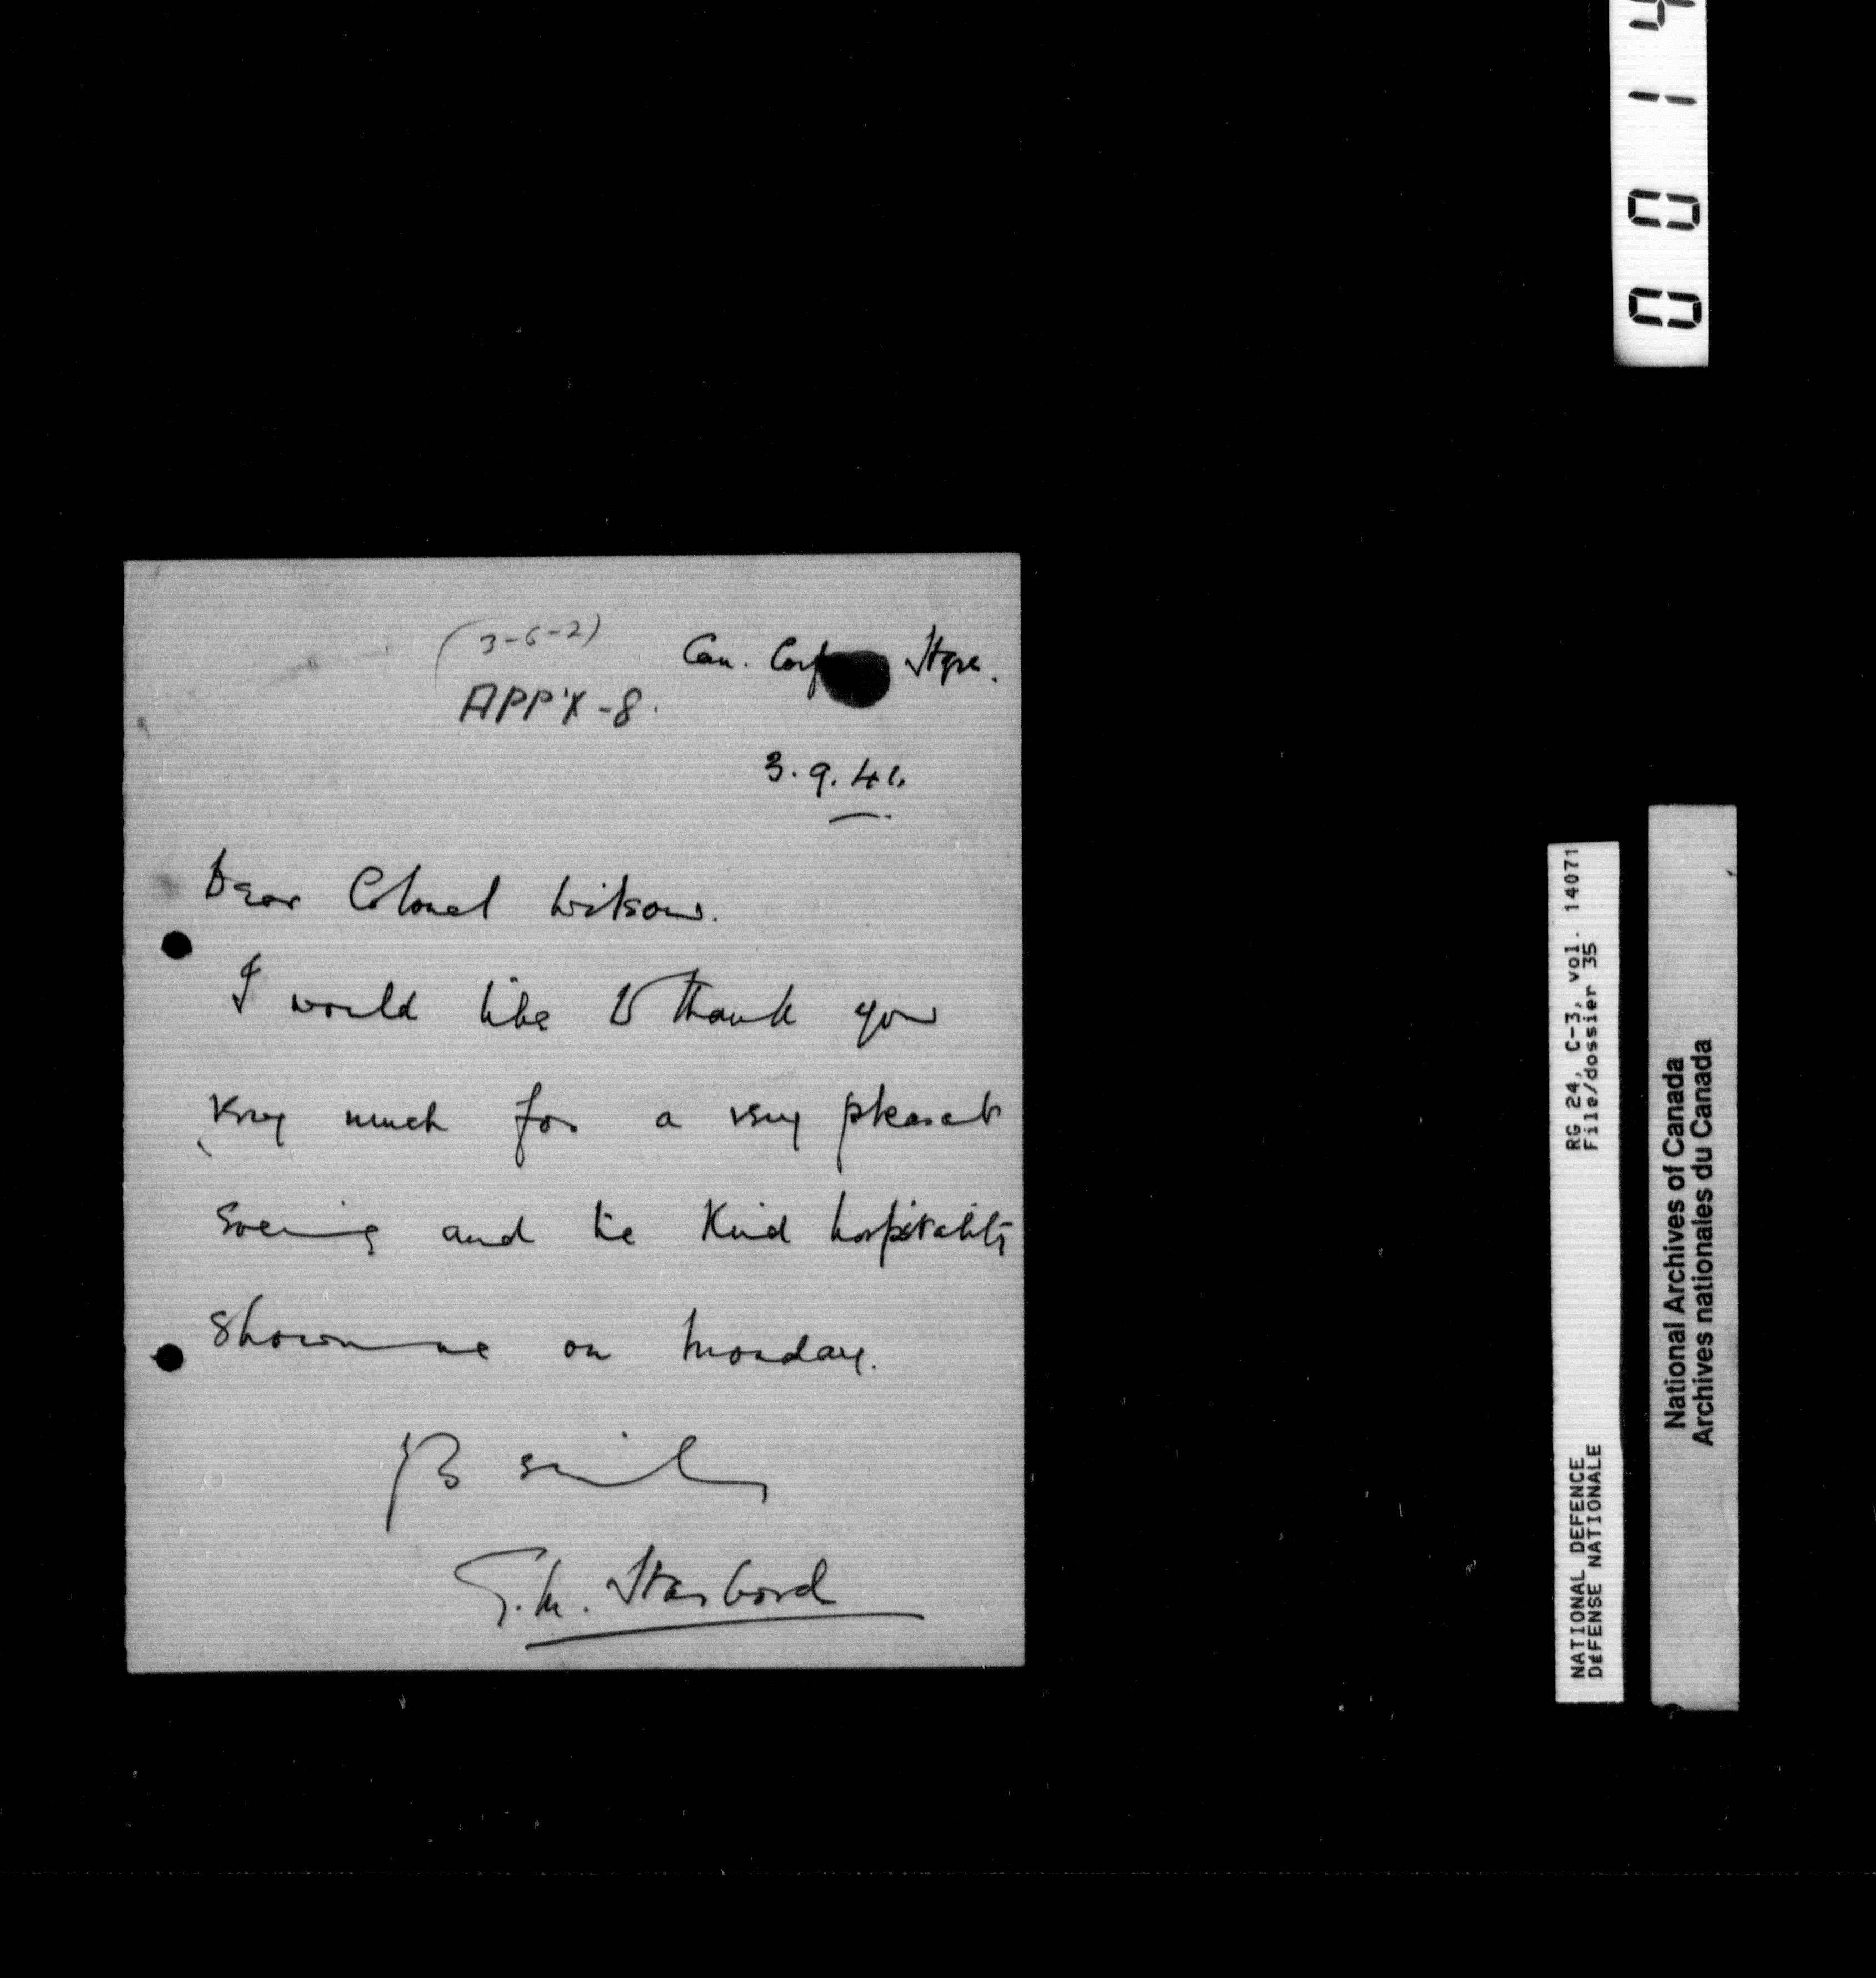 0 0 1 4
(3-6-2)
Can. Corps Hqrs.
APP'X-8.
3.9.41.
Dear Colonel Wilson.
I would like to thank you
very much for a very pleasant
evening and the kind hospitality
shown me on Monday.
RG 24, C-3, vol. 14071
File/dossier 35
NATIONAL DEFENCE
DÉFENSE NATIONALE
National Archives of Canada
Archives nationales du Canada